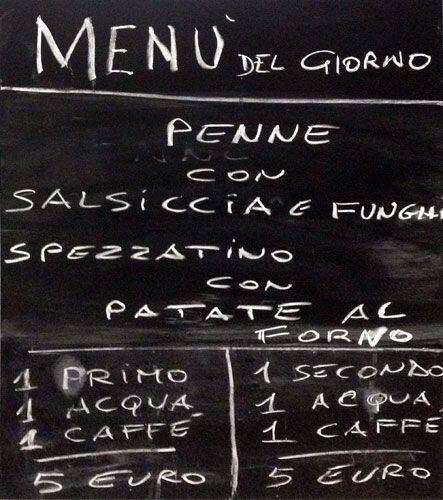 MENÙ DEL GIORNO
PENNE
CON
SALSICCIA E FUNGHI
SPEZZATINO
CON
PATATE AL
FORNO
1 PRIMO
1 ACQUA
1 CAFFÈ
5 EURO
1 SECONDO
1 ACQUA
1 CAFFÈ
5 EURO